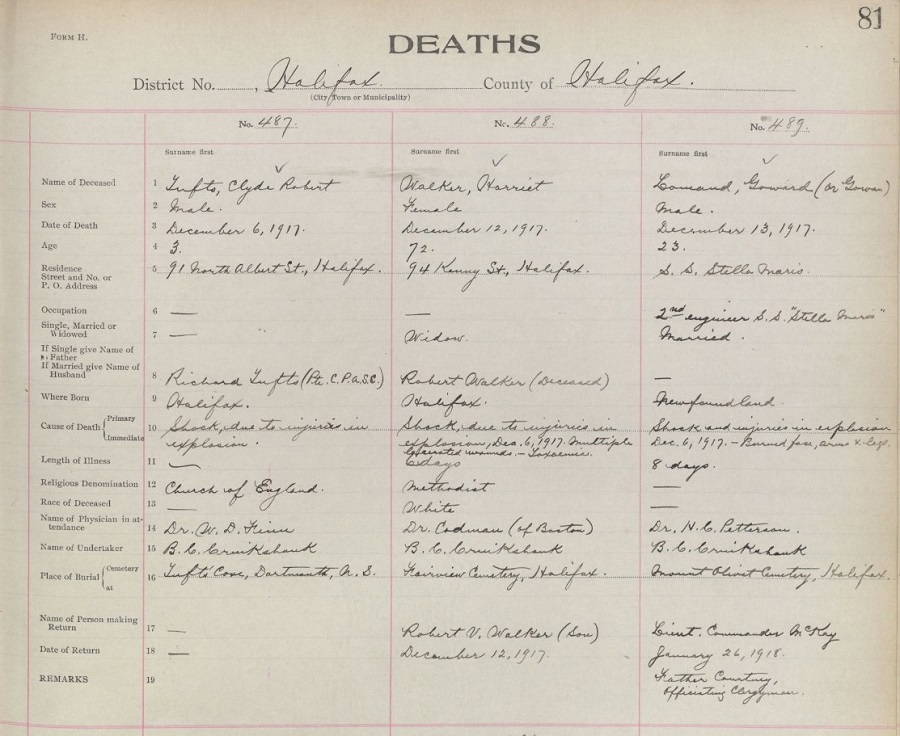 81
FORM H.
DEATHS
District No. , Halifax. County of Halifax.
(City, Town or Municipality)
No. 487. No. 488. No. 489.
Surname first Surname first Surname first
Name of Deceased 1 Tufts, Clyde Robert Walker, Harriet Comand, Goward (or Gowan)
Sex 2 Male. Female Male.
Date of Death 3 December 6, 1917. December 12, 1917. December 13, 1917.
Age 4 3. 72. 23.
Residence
Street and No. or 5 91 North Albert St., Halifax. 94 Kenny St., Halifax. S. S. Stella Maris.
P. O. Address
Occupation 6 — — 2nd engineer S. S. "Stella Maris"
Single, Married or
Widowed 7 — Widow. Married.
If Single give Name of
Father
If Married give Name of
Husband 8 Richard Tufts (Pte. C.P.A.S.C.) Robert Walker (Deceased) —
Where Born 9 Halifax. Halifax. Newfoundland.
Cause of Death { Primary 10 Shock, due to injuries in Shock, due to injuries in Shock and injuries in explosion
Immediate explosion. explosion, Dec. 6, 1917. Multiple Dec. 6, 1917. – Burned face, arms & legs.
lacerated wounds. – Toxaemia.
Length of Illness 11 — 6 days 8 days.
Religious Denomination 12 Church of England. Methodist —
Race of Deceased 13 — White —
Name of Physician in at-
tendance 14 Dr. W. D. Finn Dr. Codman (of Boston) Dr. H. C. Petterson.
Name of Undertaker 15 B. C. Cruikshank B. C. Cruikshank B. C. Cruikshank
Place of Burial { Cemetery 16 Tufts Cove, Dartmouth, N. S. Fairview Cemetery, Halifax. Mount Olivet Cemetery, Halifax.
at
Name of Person making
Return 17 — Robert V. Walker (Son) Lieut. Commander McKay
Date of Return 18 — December 12, 1917. January 26, 1918.
REMARKS 19 Father Courtney,
Officiating Clergyman.